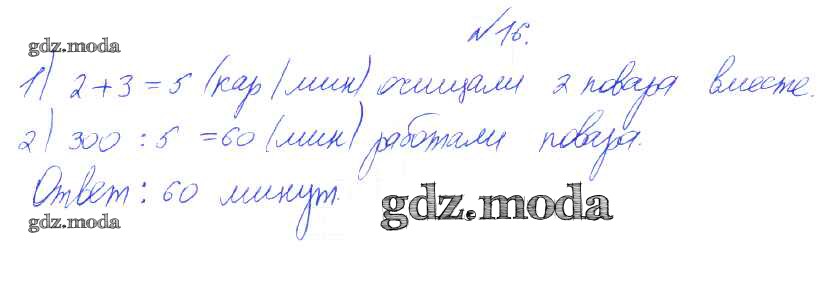 №16.
gdz.moda
1) 2+3=5 (кар/мин) очищали 2 повара вместе.
2) 300 : 5 =60 (мин) работали повара.
Ответ: 60 минут.
gdz.moda
gdz.moda